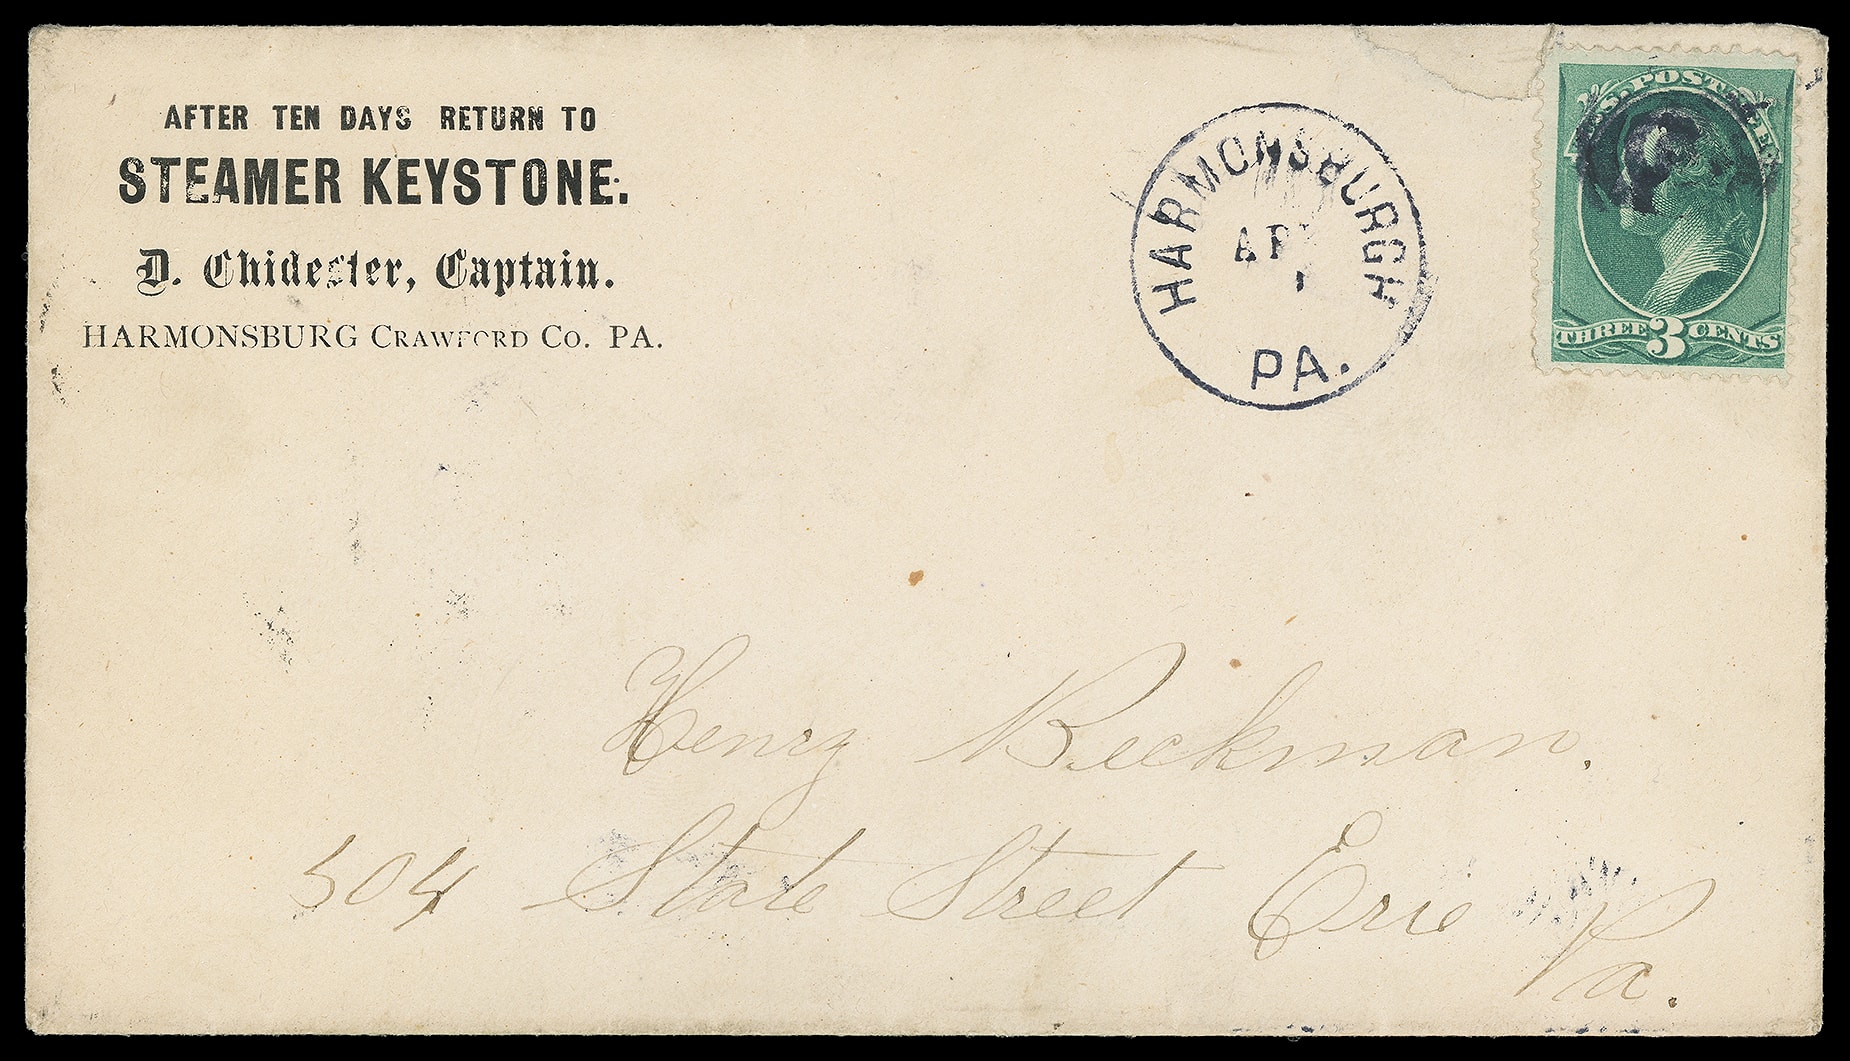 AFTER TEN DAYS RETURN TO
STEAMER KEYSTONE.
D. Chidester, Captain.
HARMONSBURG CRAWFORD CO. PA.
HARMONSBURGH
PA.
U.S. POSTAGE
THREE 3 CENTS
Henry Beckman.
504 State Street Erie Pa.